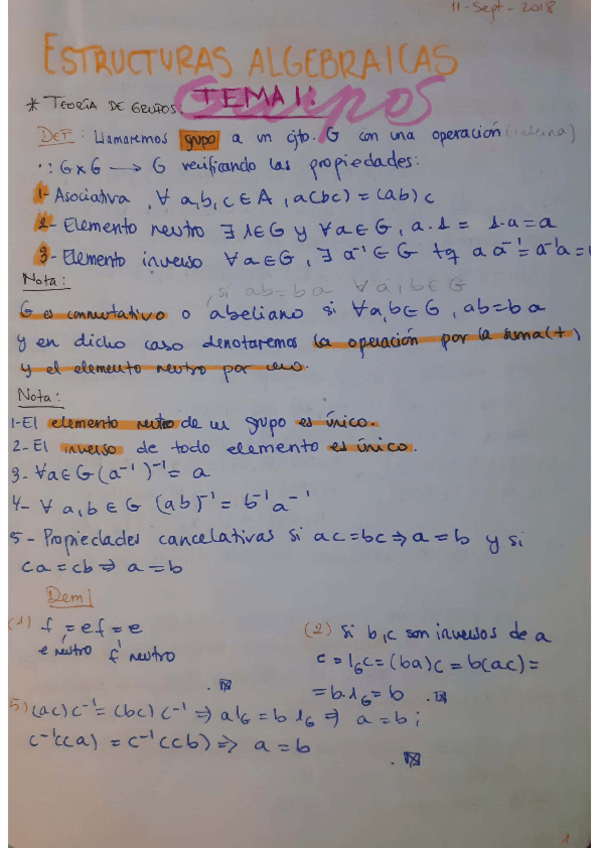 11-Sept-2018
ESTRUCTURAS ALGEBRAICAS
* TEORÍA DE GRUPOS. TEMA 1: Grupos
DEF: Llamaremos grupo a un cjto. G con una operación (interna)
·: G x G → G verificando las propiedades:
1- Asociativa, ∀ a, b, c ∈ A, a(bc) = (ab)c
2- Elemento neutro ∃ 1∈G y ∀a∈G, a·1 = 1·a = a
3- Elemento inverso ∀a∈G, ∃ a⁻¹ ∈ G tq a a⁻¹ = a⁻¹a = 1
Nota:
, si ab = ba ∀ a, b ∈ G
G es conmutativo o abeliano si ∀a,b∈G, ab = ba
y en dicho caso denotaremos la operación por la suma (+)
y el elemento neutro por cero.
Nota:
1-El elemento neutro de un grupo es único.
2- El inverso de todo elemento es único.
3- ∀a∈G (a⁻¹)⁻¹ = a
4- ∀ a, b ∈ G (ab)⁻¹ = b⁻¹a⁻¹
5 - Propiedades cancelativas si ac = bc ⇒ a = b y si
ca = cb ⇒ a = b
Dem/
(1) f = ef = e
e neutro f neutro
(2) Si b, c son inversos de a
c = 1_G c = (ba)c = b(ac) =
= b·1_G = b
5) (ac)c⁻¹ = (bc)c⁻¹ ⇒ a1_G = b1_G ⇒ a = b;
c⁻¹(ca) = c⁻¹(cb) ⇒ a = b
1